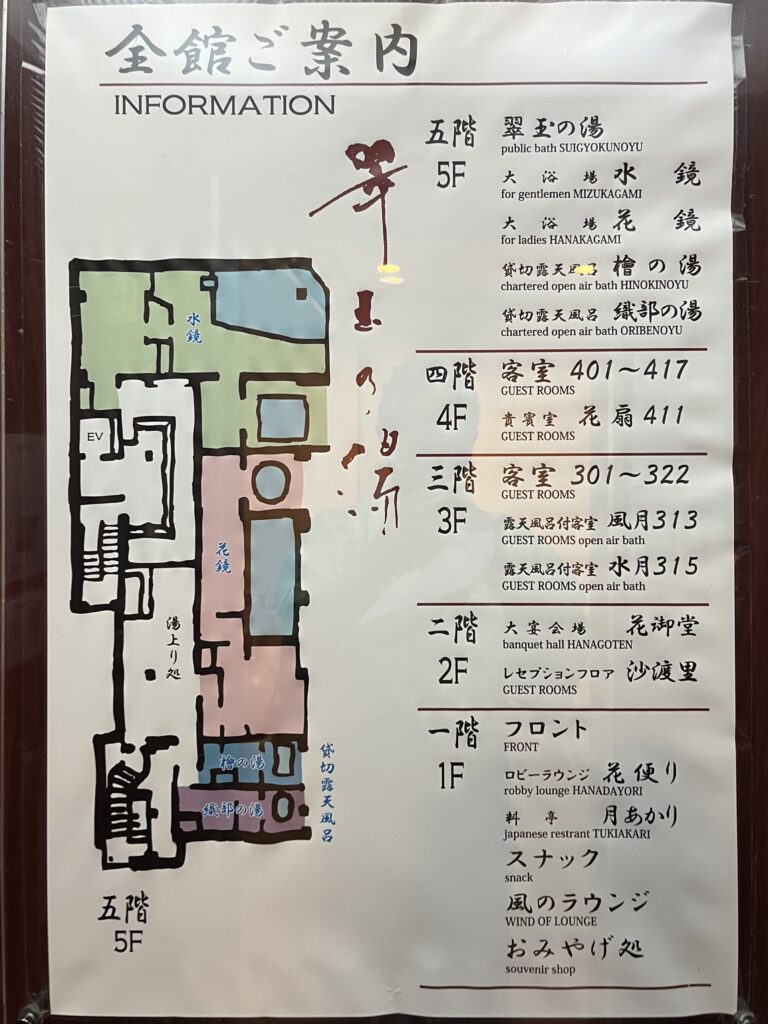 全館ご案内
INFORMATION
翠玉の湯
五階
5F
翠玉の湯
public bath SUIGYOKUNOYU
大浴場 水鏡
for gentlemen MIZUKAGAMI
大浴場 花鏡
for ladies HANAKAGAMI
貸切露天風呂 檜の湯
chartered open air bath HINOKINOYU
貸切露天風呂 織部の湯
chartered open air bath ORIBENOYU
四階
4F
客室 401～417
GUEST ROOMS
貴賓室 花扇 411
GUEST ROOMS
三階
3F
客室 301～322
GUEST ROOMS
露天風呂付客室 風月313
GUEST ROOMS open air bath
露天風呂付客室 水月315
GUEST ROOMS open air bath
二階
2F
大宴会場 花御堂
banquet hall HANAGOTEN
レセプションフロア 沙渡里
GUEST ROOMS
一階
1F
フロント
FRONT
ロビーラウンジ 花便り
robby lounge HANADAYORI
料亭 月あかり
japanese restrant TUKIAKARI
スナック
snack
風のラウンジ
WIND OF LOUNGE
おみやげ処
souvenir shop
水鏡
EV
花鏡
湯上り処
檜の湯
織部の湯
貸切露天風呂
五階
5F